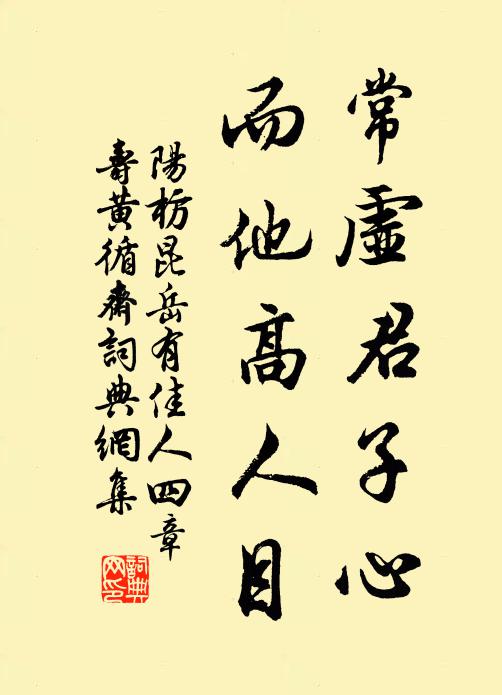 常虛君子心
而他高人目
陽枋昆岳有佳人四章
壽黃循齋詞典網集
詞典网印